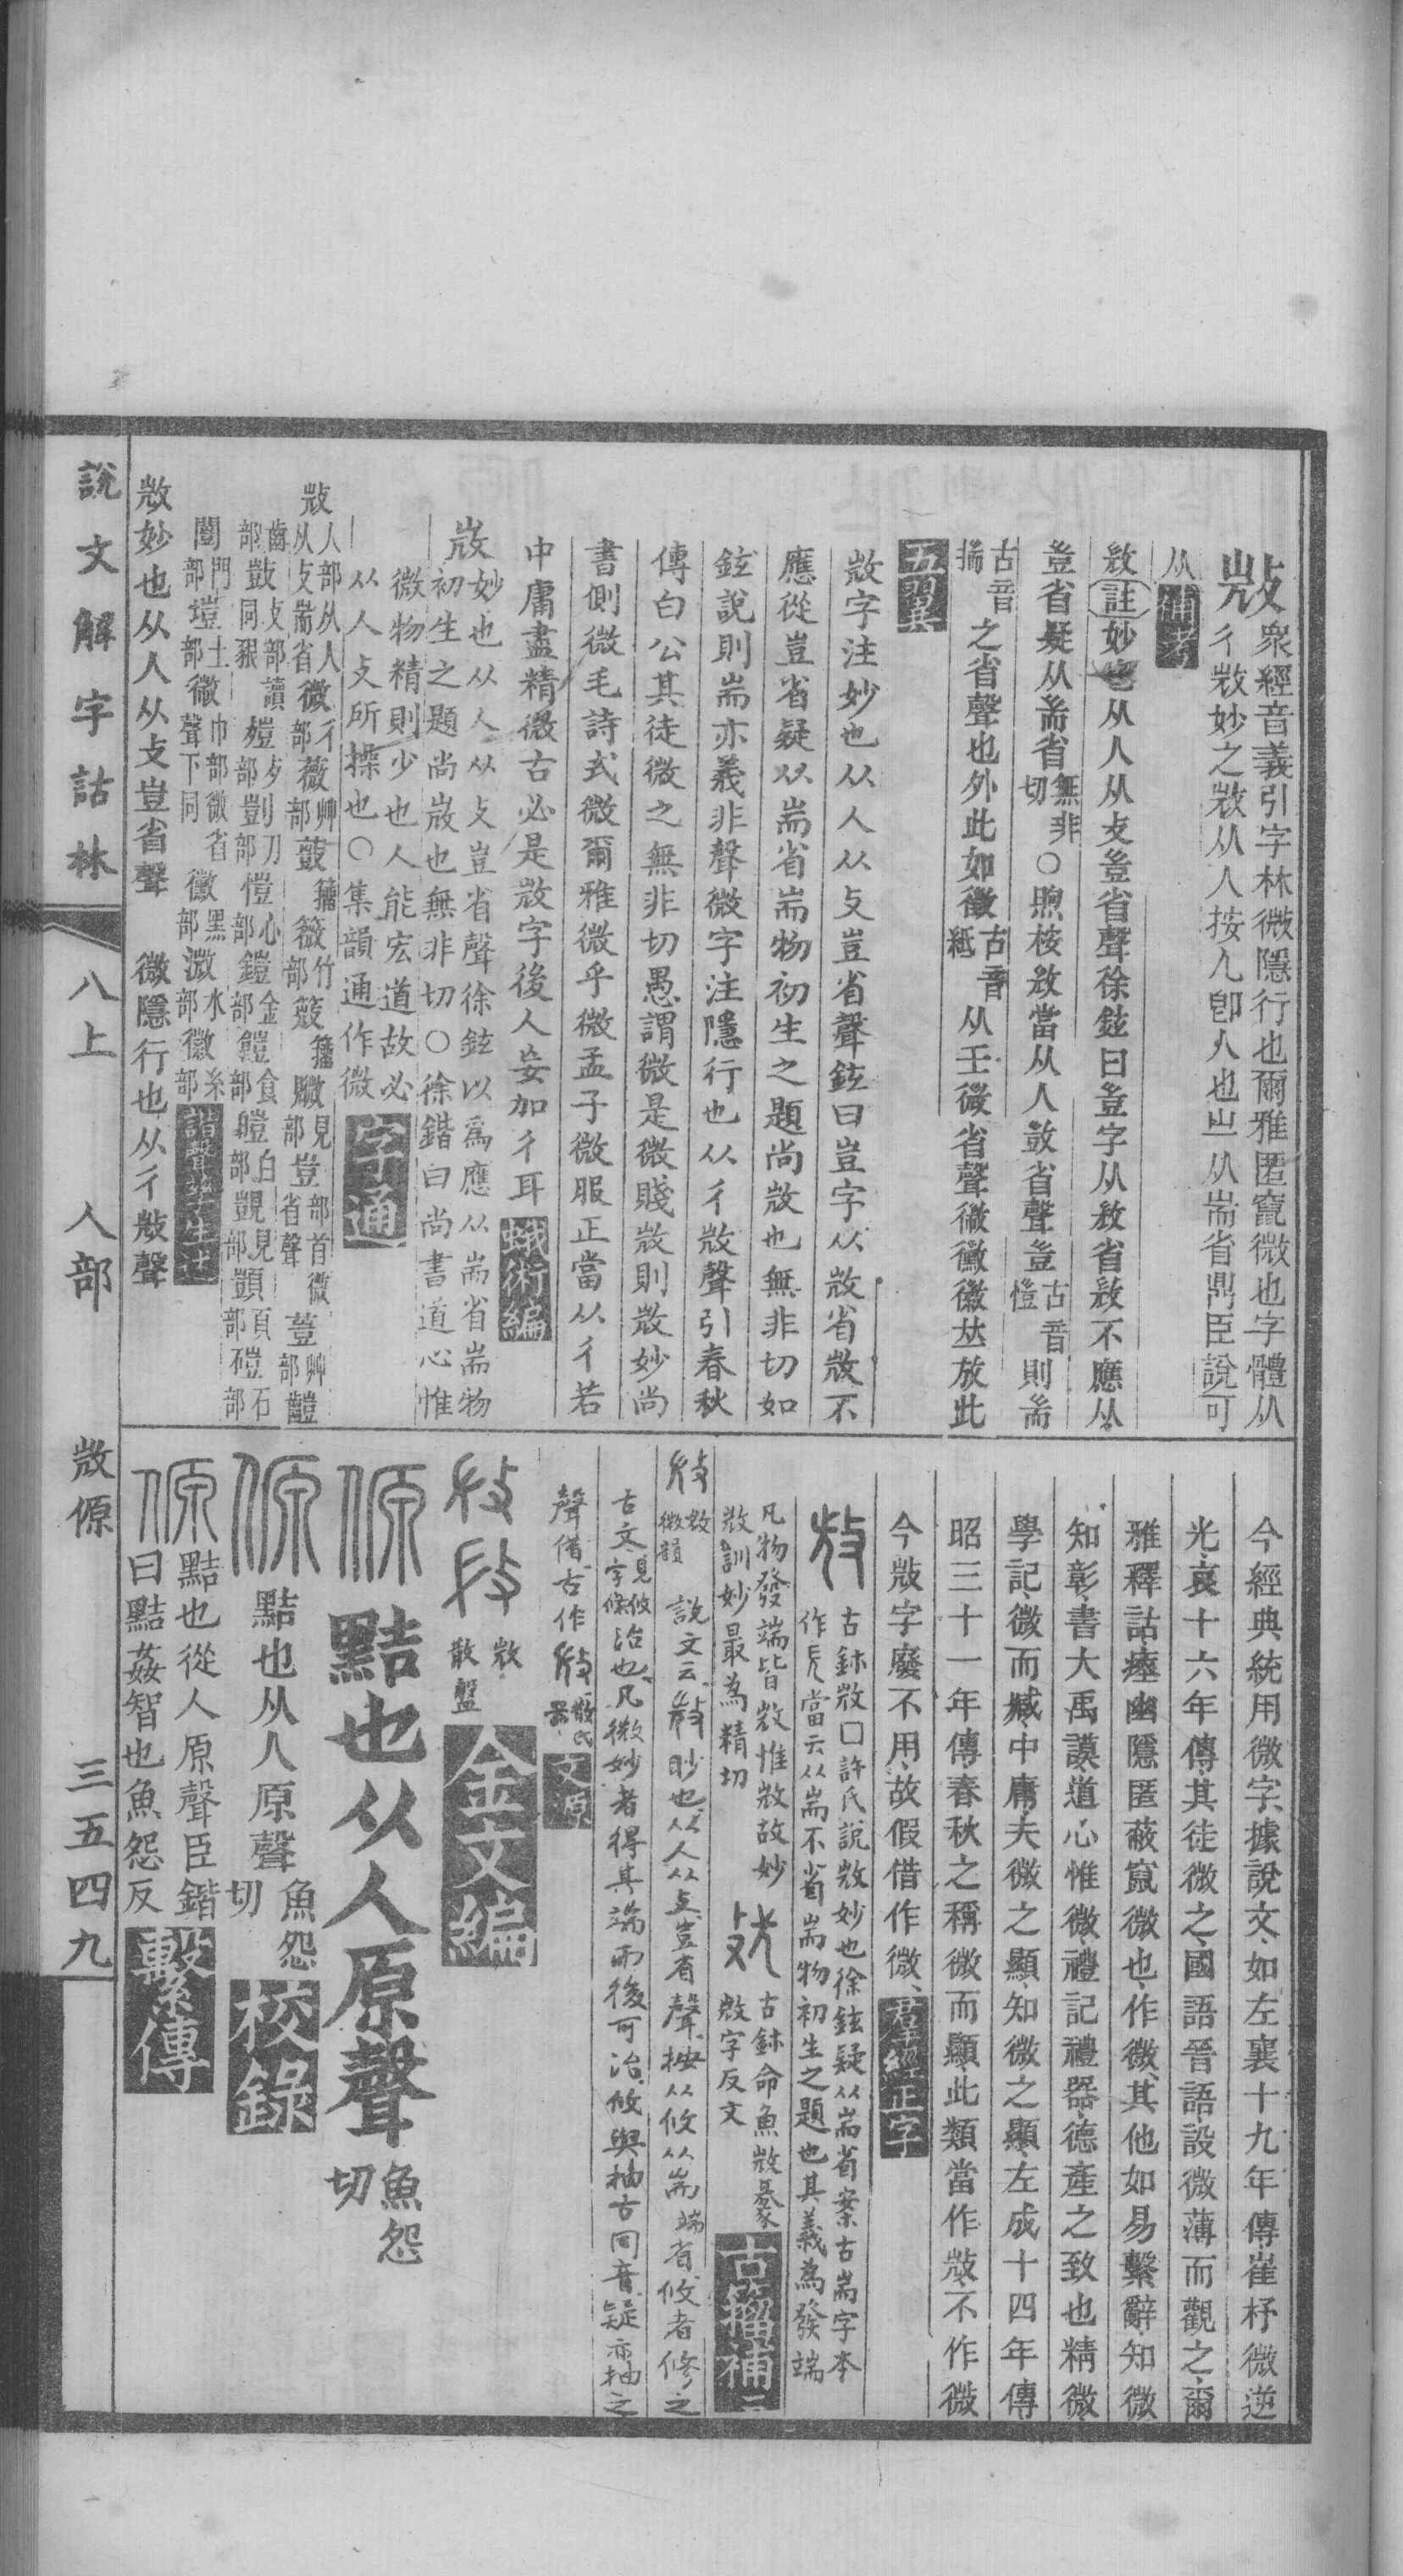 𢼸
眾經音義引字林微隱行也爾雅匿竄微也字體从
彳𢼸妙之𢼸从人按𠆢卽人也𡵂从耑省鼎臣說可
从 補考
𢼸 註 妙也从人从攴豈省聲徐鉉曰豈字从𢼸省𢼸不應从
豈省疑从耑省無非切〇煦桉𢼸當从人豈省聲豈古音愷則耑
古音揣之省聲也外此如徵古音紙从壬微省聲黴徽𠀤放此
五翼
𢼸字注妙也从人从攴豈省聲鉉曰豈字从𢼸省𢼸不
應從豈省疑从耑省耑物初生之題尚𢼸也無非切如
鉉說則耑亦義非聲微字注隱行也从彳𢼸聲引春秋
傳白公其徒微之無非切愚謂微是微賤𢼸則𢼸妙尚
書側微毛詩式微爾雅微乎微孟子微服正當从彳若
中庸盡精微古必是𢼸字後人妄加彳耳 蛾術編
𢼸 妙也从人从攴豈省聲徐鉉以爲應从耑省耑物
初生之題尚𢼸也無非切〇徐鍇曰尚書道心惟
微物精則少也人能宏道故必
从人攴所操也〇集韻通作微 字通
𢼸 人部从人从攴耑省 微彳部 薇艸部 籀 籢竹部 籀 見部 豈部首微省聲 艸部
齒部 攴部讀同豤 歹部 剴刀部 愷心部 鎧金部 食部 皚白部 覬見部 顗頁部 磑石部
闓門部 塏土部 巾部微省聲下同 黴黑部 溦水部 徽糸部 諧聲補逸
𢼸妙也从人从攴豈省聲 微隱行也从彳𢼸聲
今經典統用微字、據說文、如左襄十九年傳崔杼微逆
光、哀十六年傳其徒微之、國語晉語、設微薄而觀之、爾
雅釋詁、瘞幽隱匿蔽竄微也、作微、其他如易繫辭、知微
知彰、書大禹謨、道心惟微、禮記禮器、德產之致也精微、
學記、微而臧、中庸、夫微之顯、知微之顯、左成十四年傳
昭三十一年傳、春秋之稱微而顯、此類當作𢼸、不作微
今𢼸字廢不用、故假借作微、 羣經正字
古鉥𢼸囗許氏說𢼸妙也徐鉉疑从耑省案古耑字本
作當云从耑不省耑物初生之題也其義為發端
凡物發端皆𢼸惟𢼸故妙
𢼸訓妙最為精切
古鉥命魚𢼸
𢼸字反文 古籀補
𢼸 微韻 說文云、𢼸眇也、从人从攴、豈省聲、按从攸从耑耑省、攸者修之
古文、見攸字條治也、凡微妙者得其端而後可治、攸與抽古同音、疑亦抽之
聲借、古作 散氏器 文源
𢼸 散盤 金文編
傆 黠也从人原聲 魚怨切
傆 黠也从人原聲 魚怨切 校錄
傆 黠也從人原聲臣鍇
曰黠姦智也魚怨反 繫傳
說文解字詁林 八上 人部 𢼸傆 三五四九